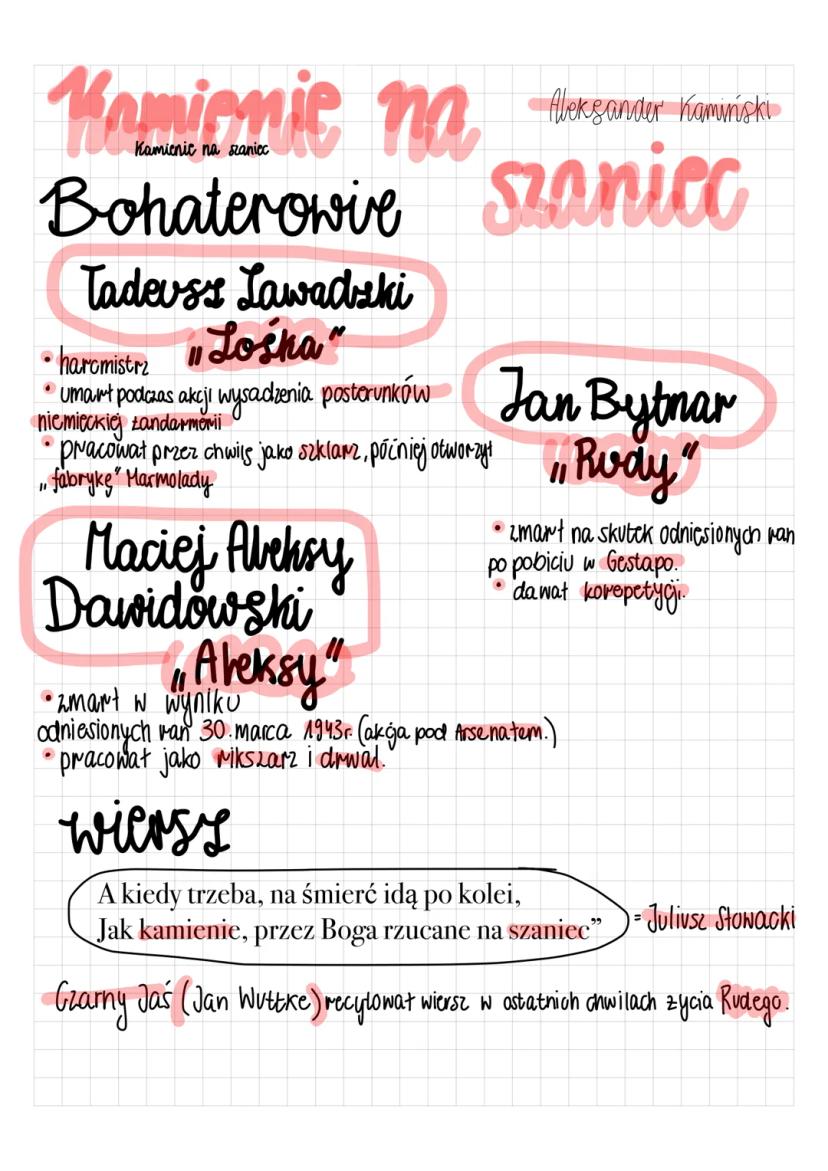 Kamienie na
szaniec
Aleksander Kamiński
Kamienie na szaniec
Bohaterowie
Tadeusz Zawadzki
„Zośka”
• harcmistrz
• umarł podczas akcji wysadzenia posterunków
niemieckiej żandarmerii
• pracował przez chwilę jako szklarz, później otworzył
„fabrykę” Marmolady.
Jan Bytnar
„Rudy”
• zmarł na skutek odniesionych ran
po pobiciu w Gestapo.
• dawał korepetycji.
Maciej Aleksy
Dawidowski
„Aleksy”
• zmarł w wyniku
odniesionych ran 30. marca 1943r. (akcja pod Arsenałem.)
• pracował jako rikszarz i drwal.
wiersz
A kiedy trzeba, na śmierć idą po kolei,
Jak kamienie, przez Boga rzucane na szaniec”
= Juliusz Słowacki
Czarny Jaś (Jan Wuttke) recytował wiersz w ostatnich chwilach życia Rudego.